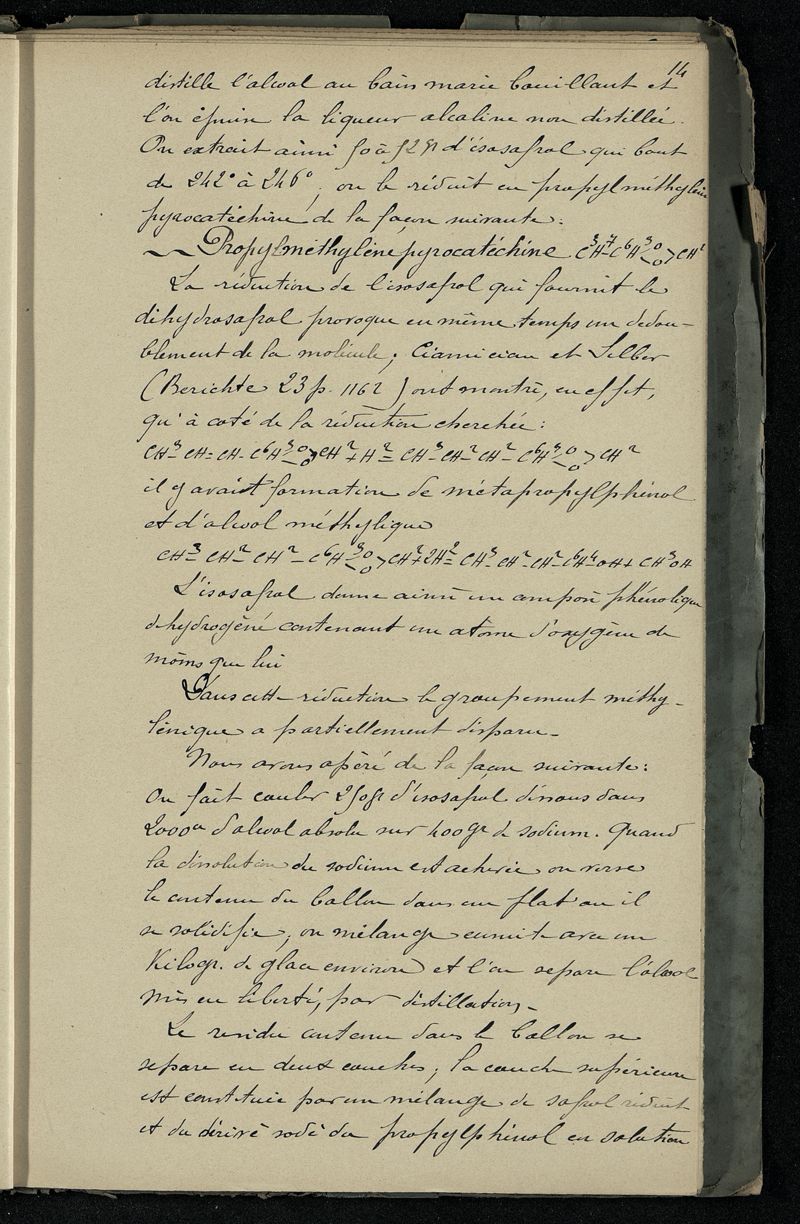 14
distille l'alcool au bain marie bouillant et
l'on épuise la liqueur alcaline non distillée.
On extrait ainsi 50 à 52 gr d'isosafrol qui bout
de 242° à 246°, on le réduit en propylméthylène
pyrocatéchine de la façon suivante:
Propylméthylènepyrocatéchine C³H⁷-C⁶H³=O-O>CH²
La réduction de l'isosafrol qui fournit le
dihydrosafrol provoque en même temps un dedou-
blement de la molécule; Ciamician et Silber
(Berichte 23 p. 1162) ont montré, en effet,
qu'à coté de la réduction cherchée:
CH³-CH=CH-C⁶H³=O-O>CH²+H²=CH³-CH²-CH²-C⁶H³=O-O>CH²
il y avait formation de métapropylphénol
et d'alcool méthylique
CH³-CH²-CH²-C⁶H³=O-O>CH²+2H²=CH³-CH²-CH²-C⁶H⁴-OH+CH³OH
L'isosafrol donne ainsi un composé phénolique
dehydrogéné contenant un atome d'oxygène de
moins que lui
Dans cette réduction le groupement méthy-
lénique a partiellement disparu-
Nous avons opéré de la façon suivante:
On fait couler 250gr d'isosafrol dissous dans
2000cc d'alcool absolu sur 400gr de sodium. Quand
la dissolution du sodium est achevée on verse
le contenu du ballon dans un plat où il
se solidifie; on mélange ensuite avec un
Kilogr. de glace environ et l'on separe l'alcool
mis en liberté, par distillation-
Le residu contenu dans le ballon se
separe en deux couches; la couche supérieure
est constituée par un mélange de safrol réduit
et du dérivé sodé du propylphénol en solution